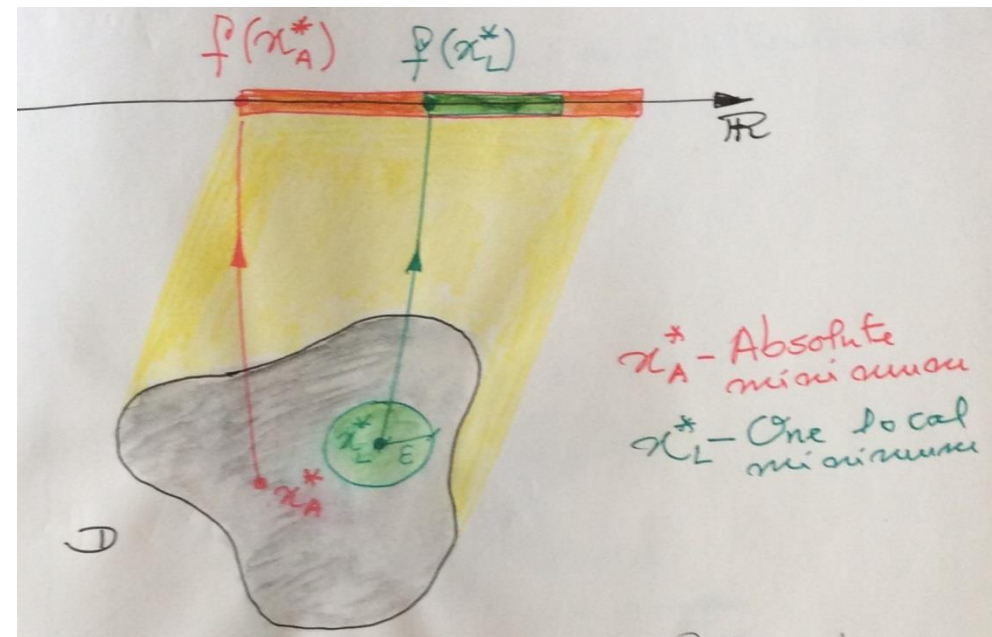 f(x*A) f(x*L)
ℝ
x*A - Absolute
minimum
x*L - One local
minimum
x*L ε
x*A
D